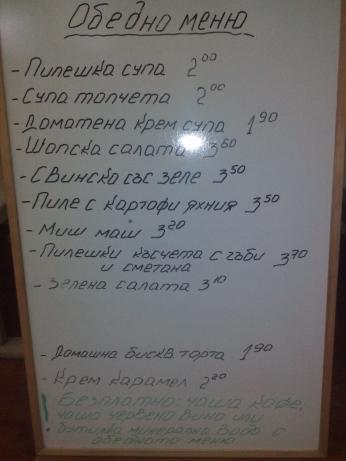 Обедно меню
- Пилешка супа 2⁰⁰
- Супа топчета 2⁰⁰
- Доматена крем супа 1⁹⁰
- Шопска салата 3⁶⁰
- Свинско със зеле 3⁵⁰
- Пиле с картофи яхния 3⁵⁰
- Миш маш 3²⁰
- Пилешки късчета с гъби
и сметана 3⁷⁰
- Зелена салата 3¹⁰
- Домашна бискв. торта 1⁹⁰
- Крем карамел 2²⁰
! Безплатно: чаша кафе,
чаша червено вино или
бутилка минерална вода с
обедното меню